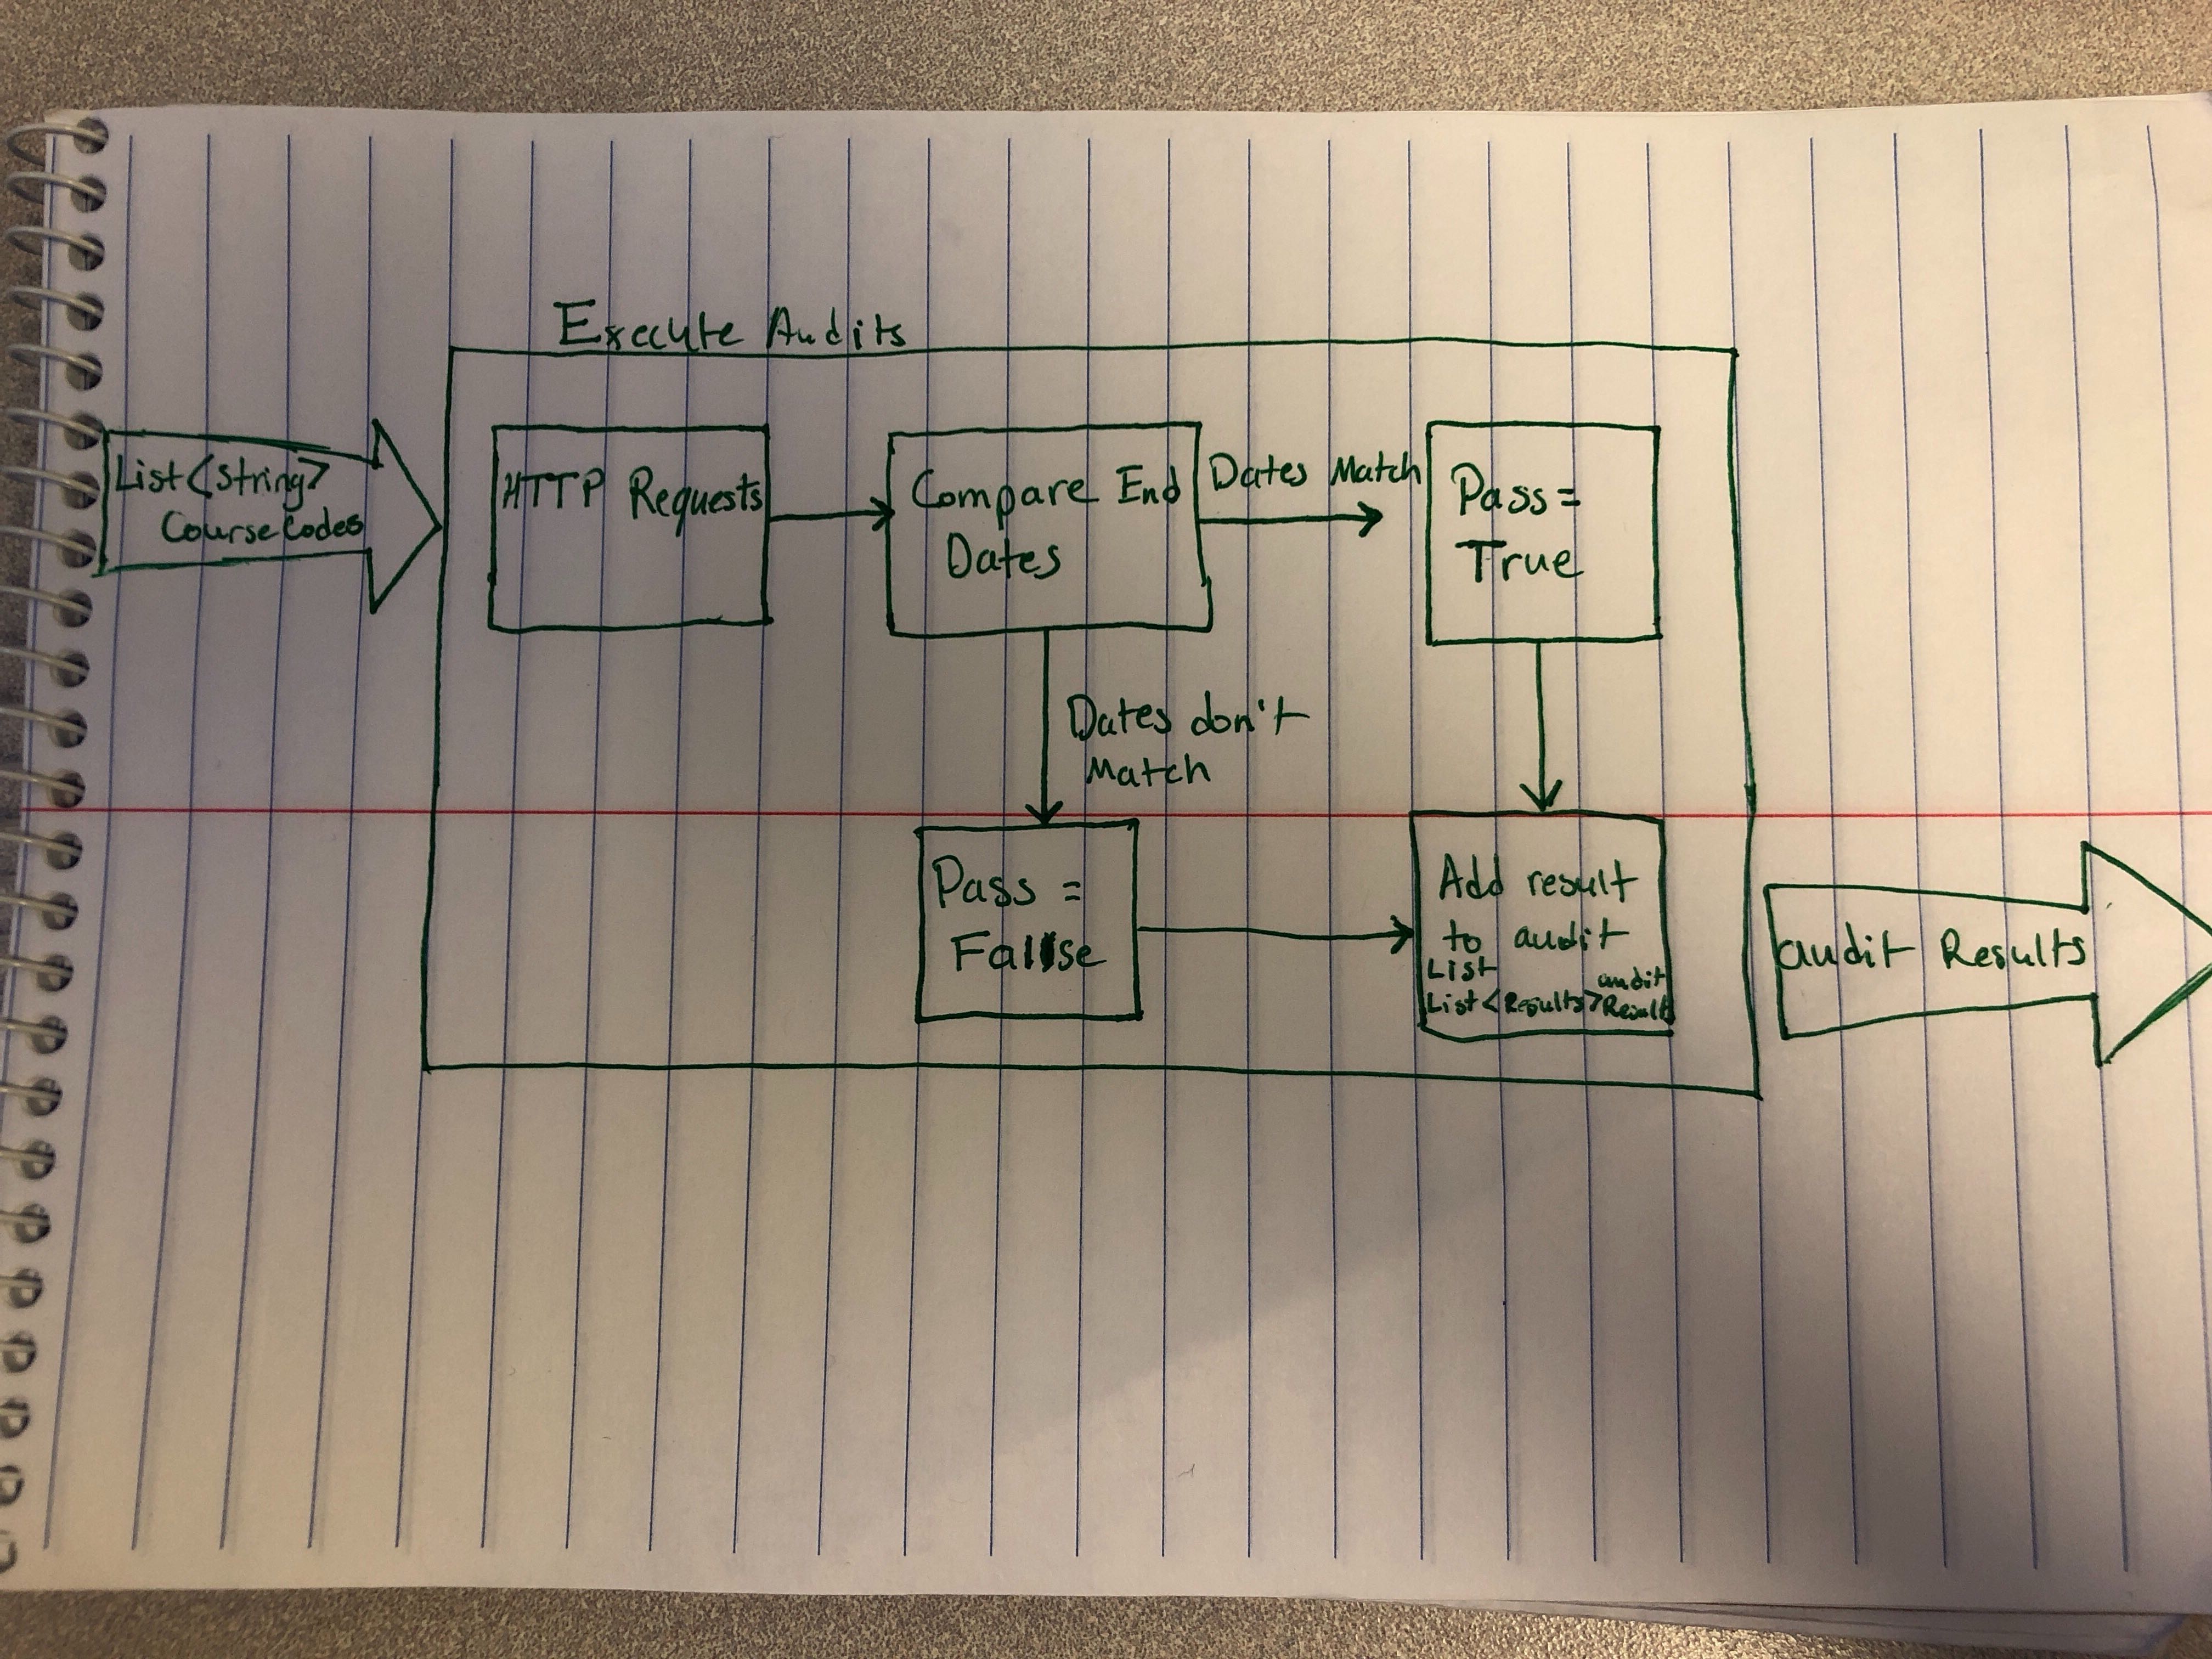 Execute Audits
List<string>
Course Codes
HTTP Requests
Compare End
Dates
Dates Match
Pass =
True
Dates don't
Match
Pass =
False
Add result
to audit
List
List<Results> audit
Result
audit Results